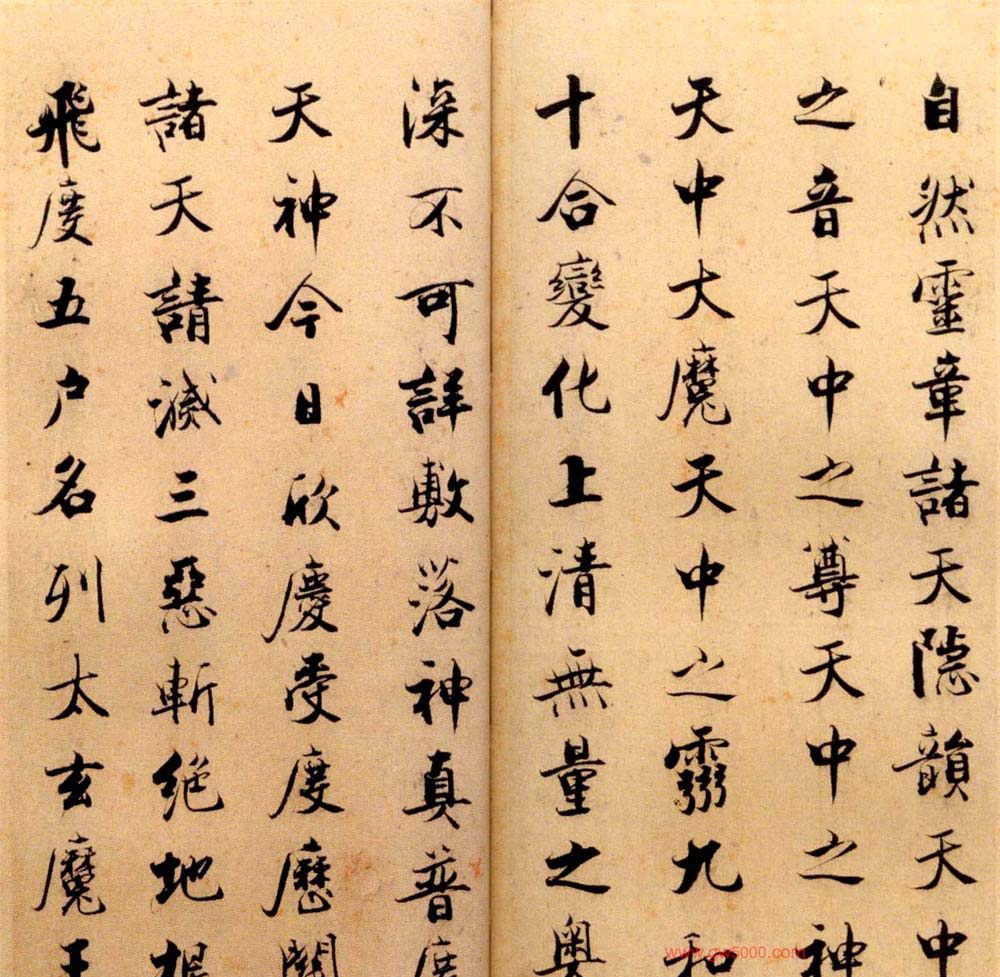 自然靈章諸天隱韻天中
之音天中之尊天中之神
天中大魔天中之靈九和
十合變化上清無量之奧
深不可詳敷落神真普度
天神今日欣慶受度歷關
諸天請滅三惡斬絕地根
飛度五户名列太玄魔王